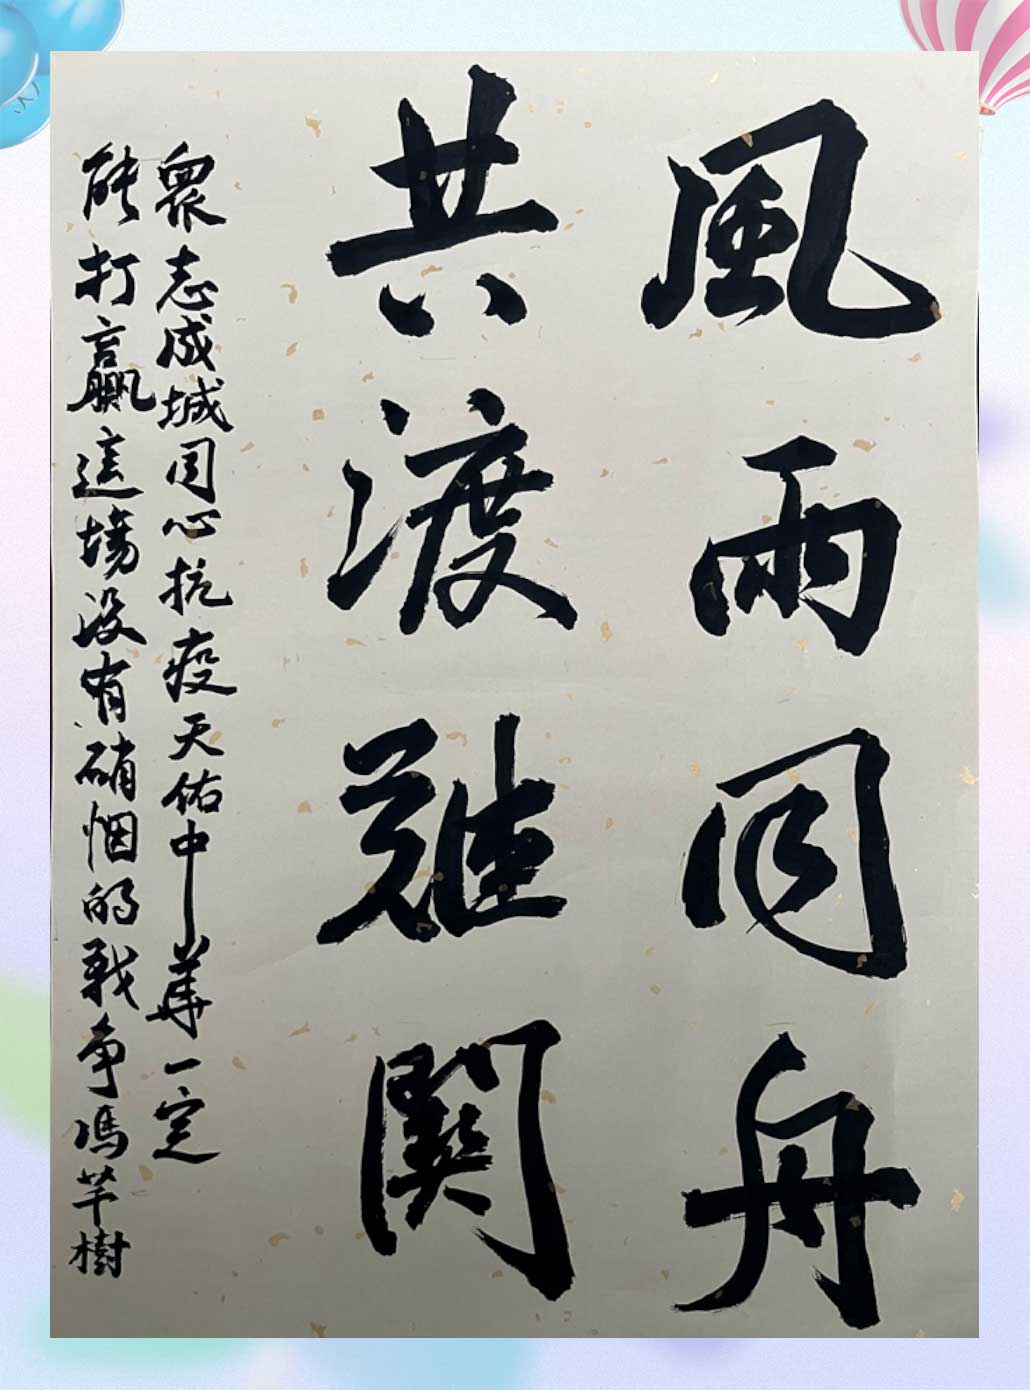 風雨同舟
共渡難関
眾志成城同心抗疫天佑中華一定
能打贏這場没有硝烟的戰争馮芊樹